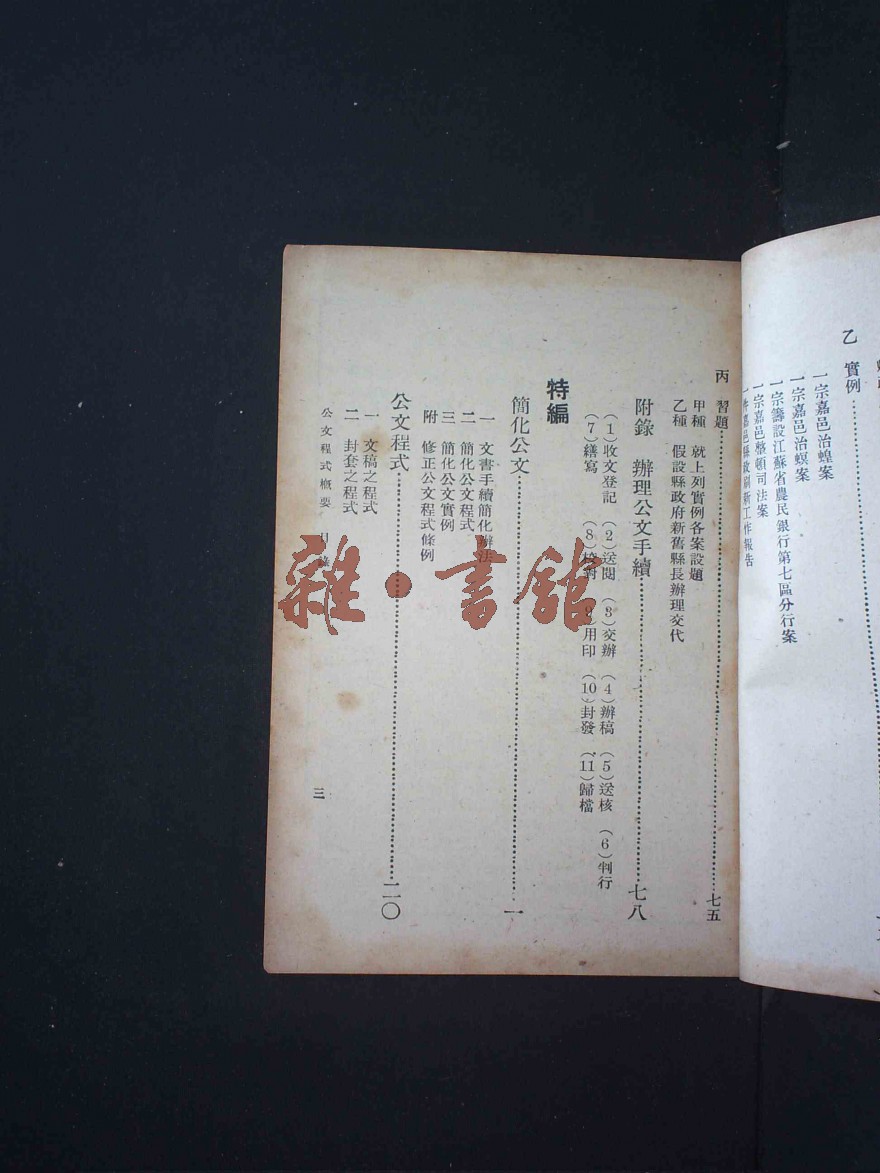 乙 實例
一宗嘉邑治蝗案
一宗嘉邑治螟案
一宗籌設江蘇省農民銀行第七區分行案
一宗嘉邑整頓司法案
一件嘉邑縣政刷新工作報告
丙 習題 七五
甲種 就上列實例各案設題
乙種 假設縣政府新舊縣長辦理交代
附錄 辦理公文手續 七八
(1)收文登記 (2)送閱 (3)交辦 (4)辦稿 (5)送核 (6)判行
(7)繕寫 (8)校對 (9)用印 (10)封發 (11)歸檔
特編
簡化公文 一
一 文書手續簡化辦法
二 簡化公文程式
三 簡化公文實例
附 修正公文程式條例
公文程式 二〇
一 文稿之程式
二 封套之程式
公文程式概要 目錄 三
雜·書館